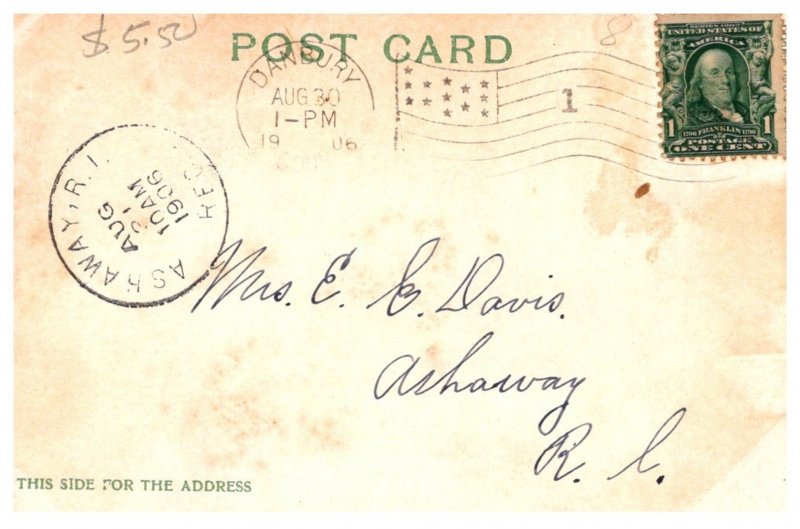 $5.50
8
POST CARD
DANBURY
AUG 30
1-PM
19 06
1
SERIES 1902
UNITED STATES OF
AMERICA
1706 FRANKLIN 1790
1 POSTAGE 1
ONE CENT
ASHAWAY, R.I.
AUG
31
10AM
1906
REC'D
Mrs. E. E. Davis.
Ashaway
R. I.
THIS SIDE FOR THE ADDRESS